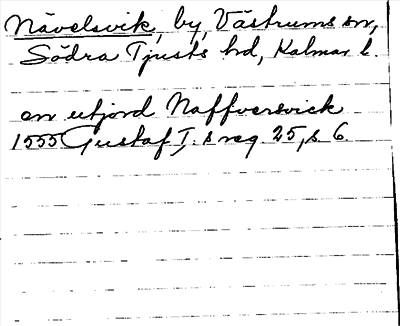 Nävelsvik, by, Västrums sn,
Södra Tjusts hd, Kalmar l.
en utjord Naffversvick
1555 Gustaf I. s reg. 25, s. 6.